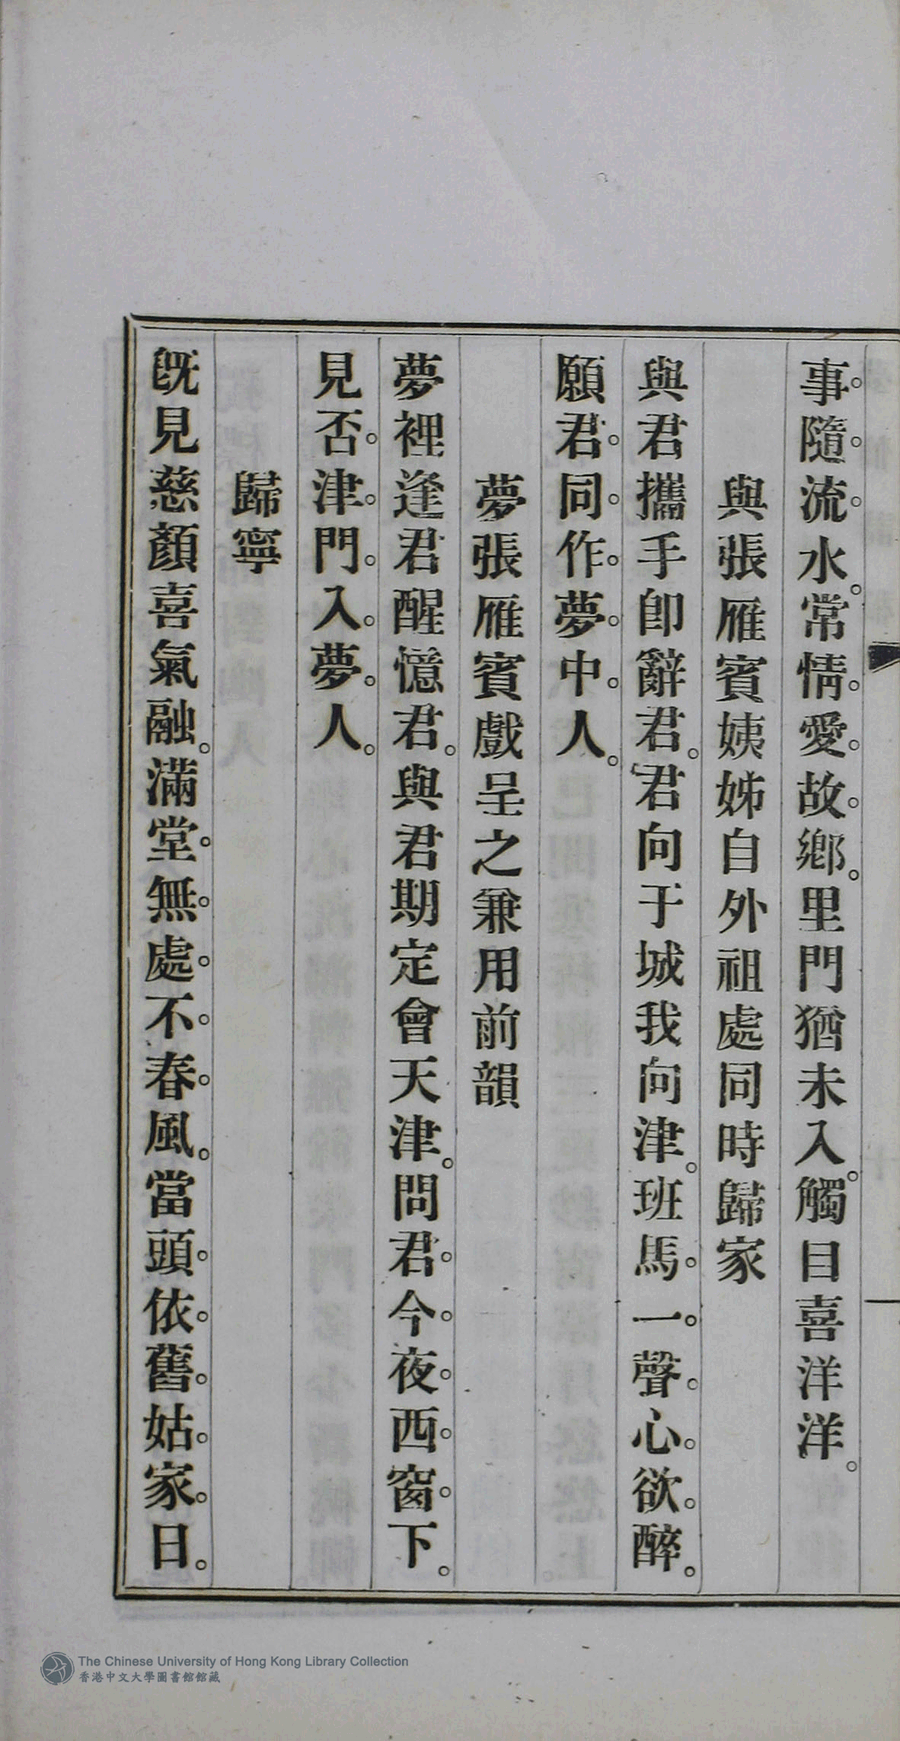 事隨流水。常情愛故鄉。里門猶未入。觸目喜洋洋。
與張雁賓姨姊自外祖處同時歸家
與君攜手卽辭君。君向于城我向津。班馬一聲心欲醉。
願君同作夢中人。
夢張雁賓戲呈之兼用前韻
夢裡逢君醒憶君。與君期定會天津。問君今夜西窗下。
見否津門入夢人。
歸寧
旣見慈顏喜氣融。滿堂無處不春風。當頭依舊姑家日。
The Chinese University of Hong Kong Library Collection
香港中文大學圖書館館藏